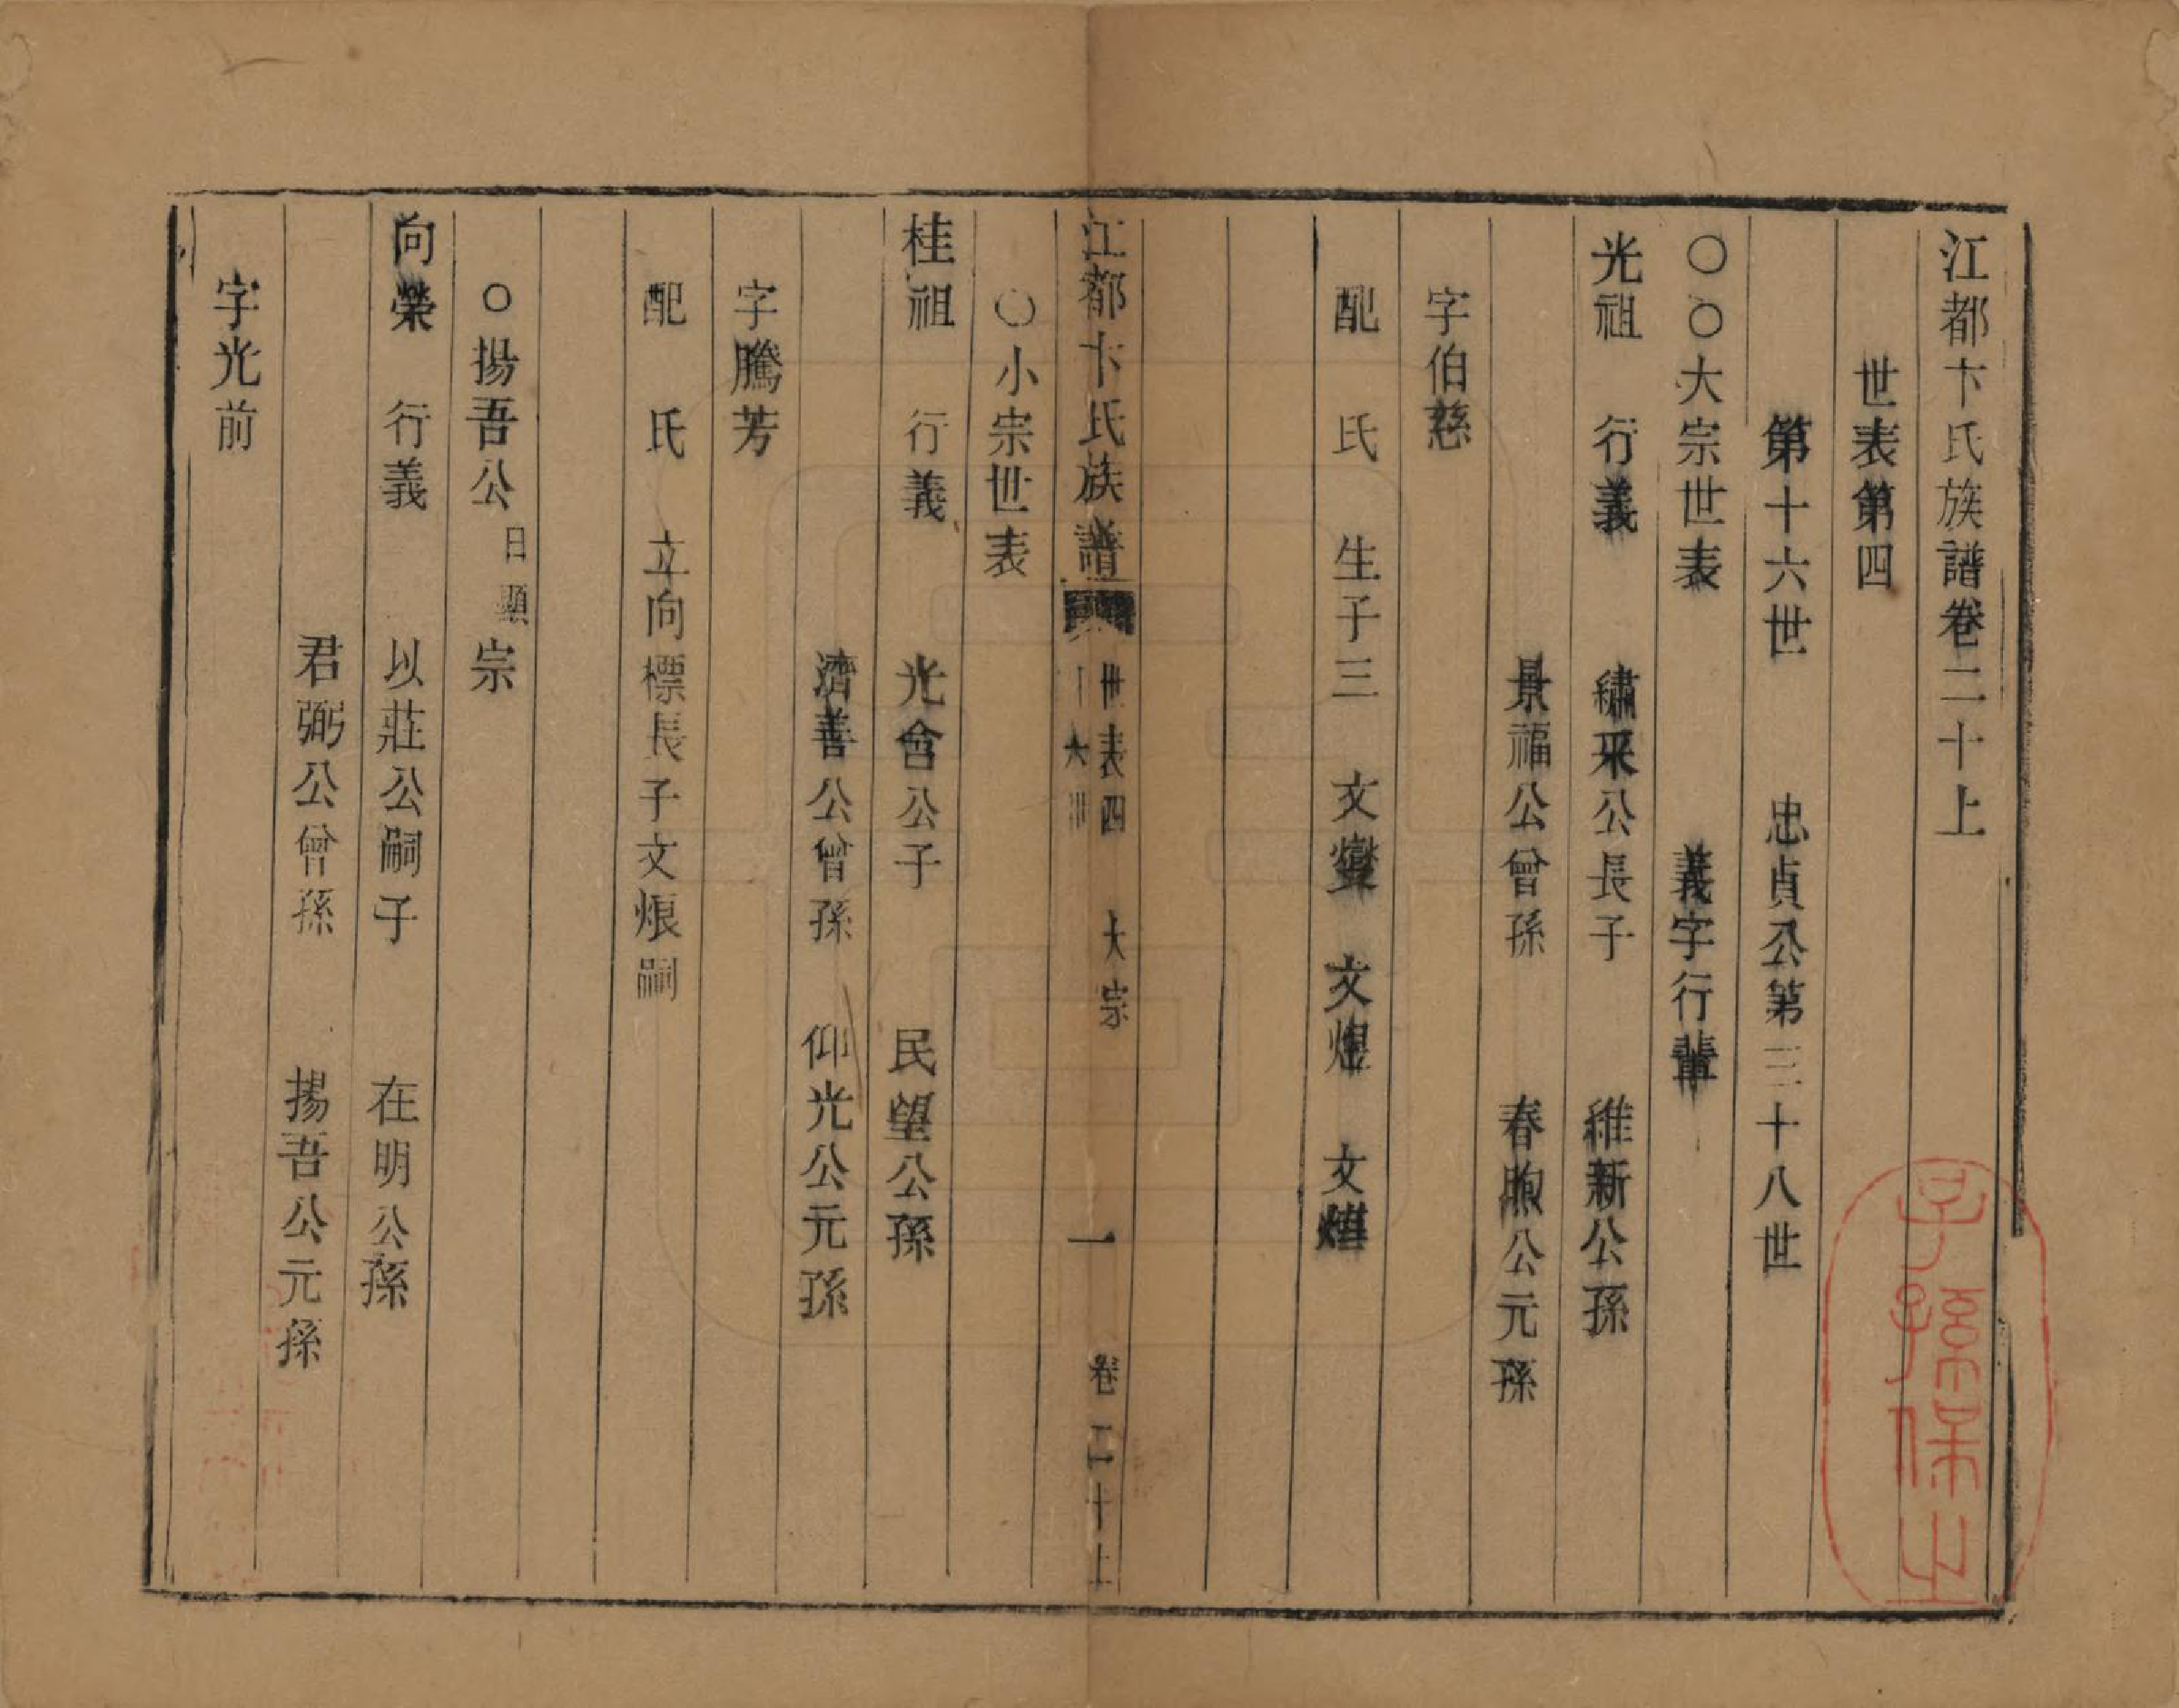 江都卞氏族譜卷二十上
世表第四
第十六世 忠貞公第三十八世
〇〇大宗世表 義字行輩
光祖 行義 繡采公長子 維新公孫
景福公曾孫 春煦公元孫
字伯慈
配 氏 生子三 文燮 文煜 文煒
江都卞氏族譜 世表四 大宗 十六世 一 卷二十上
〇小宗世表
桂祖 行義 光含公子 民望公孫
濟善公曾孫 仰光公元孫
字騰芳
配 氏 立向標長子文烺嗣
〇揚吾公日顯宗
向榮 行義 以莊公嗣子 在明公孫
君弼公曾孫 揚吾公元孫
字光前
子孫保之